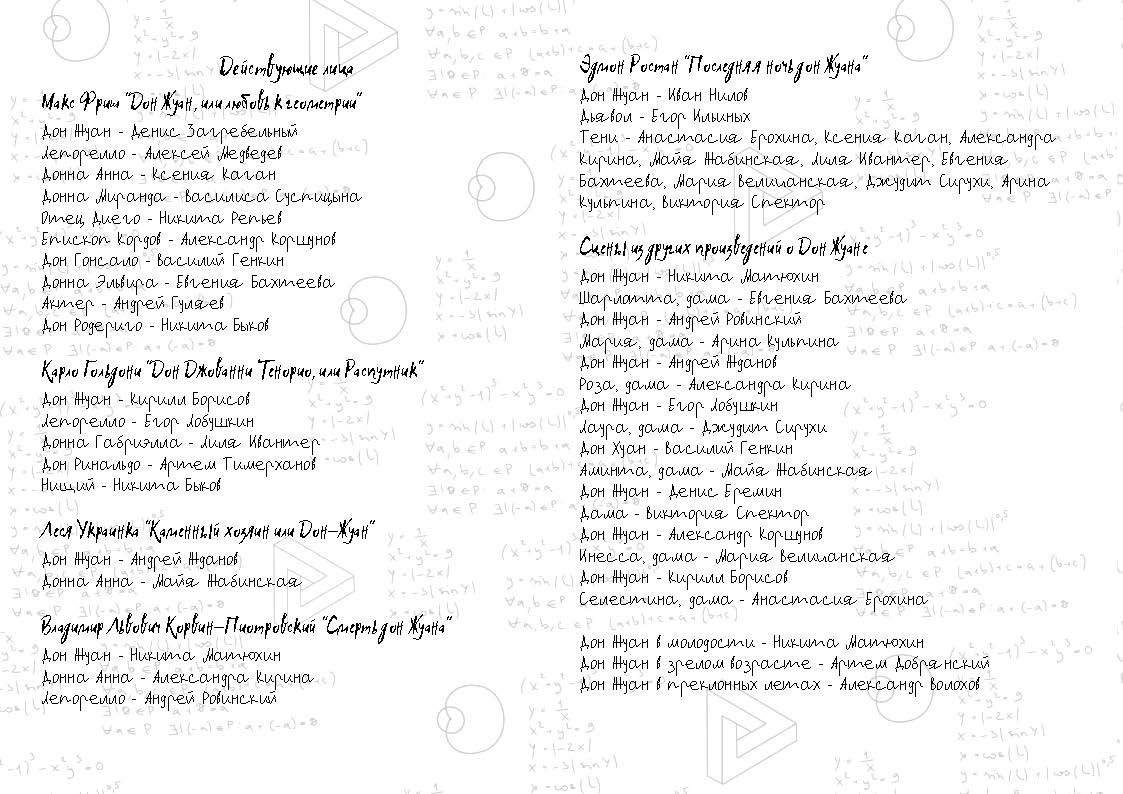 Действующие лица
Макс Фриш "Дон Жуан, или любовь к геометрии"
Дон Жуан - Денис Загребельный
Лепорелло - Алексей Медведев
Донна Анна - Ксения Каган
Донна Миранда - Василиса Суспицына
Отец Диего - Никита Репьев
Епископ Кордов - Александр Коршунов
Дон Гонсало - Василий Генкин
Донна Эльвира - Евгения Бахтеева
Актер - Андрей Гуляев
Дон Родериго - Никита Быков
Карло Гольдони "Дон Джованни Тенорио, или Распутник"
Дон Жуан - Кирилл Борисов
Лепорелло - Егор Лобушкин
Донна Габриэлла - Лиля Квантер
Дон Ринальдо - Артем Тимерханов
Нищий - Никита Быков
Леся Украинка "Каменный хозяин или Дон-Жуан"
Дон Жуан - Андрей Жданов
Донна Анна - Майя Жабинская
Владимир Львович Корвин-Пиотровский "Смерть дон Жуана"
Дон Жуан - Никита Матюхин
Донна Анна - Александра Кирина
Лепорелло - Андрей Ровинский
Эдмон Ростан "Последняя ночь дон Жуана"
Дон Жуан - Иван Нилов
Дьявол - Егор Ильиных
Тени - Анастасия Ерохина, Ксения Каган, Александра
Кирина, Майя Жабинская, Лиля Квантер, Евгения
Бахтеева, Мария Велиланская, Джудит Сирухи, Арина
Культина, Виктория Спектор
Сцены из других произведений о Дон Жуане
Дон Жуан - Никита Матюхин
Шарлотта, дама - Евгения Бахтеева
Дон Жуан - Андрей Ровинский
Мария, дама - Арина Культина
Дон Жуан - Андрей Жданов
Роза, дама - Александра Кирина
Дон Жуан - Егор Лобушкин
Лаура, дама - Джудит Сирухи
Дон Хуан - Василий Генкин
Аминта, дама - Майя Жабинская
Дон Жуан - Денис Еремин
Дама - Виктория Спектор
Дон Жуан - Александр Коршунов
Инесса, дама - Мария Велиланская
Дон Жуан - Кирилл Борисов
Селестина, дама - Анастасия Ерохина
Дон Жуан в молодости - Никита Матюхин
Дон Жуан в зрелом возрасте - Артем Добрянский
Дон Жуан в преклонных летах - Александр Волохов